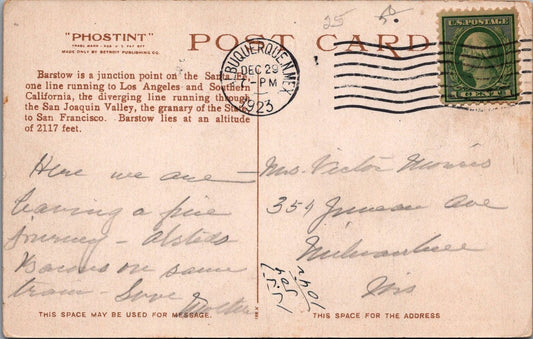 "PHOSTINT"
TRADE MARK - REG. U. S. PAT. OFF.
MADE ONLY BY DETROIT PUBLISHING CO.
POST CARD
Barstow is a junction point of the Santa Fe,
one line running to Los Angeles and Southern
California, the diverging line running through
the San Joaquin Valley, the granary of the State
to San Francisco. Barstow lies at an altitude
of 2117 feet.
25
U.S. POSTAGE
1 CENT 1
ALBUQUERQUE, N.MEX.
DEC 29
-PM
1923
Here we are —
having a fine
journey —
on same
train — Love
Mother
Mrs. Victor Morris
354 Juneau Ave
Milwaukee
Wis
THIS SPACE MAY BE USED FOR MESSAGE.
THIS SPACE FOR THE ADDRESS